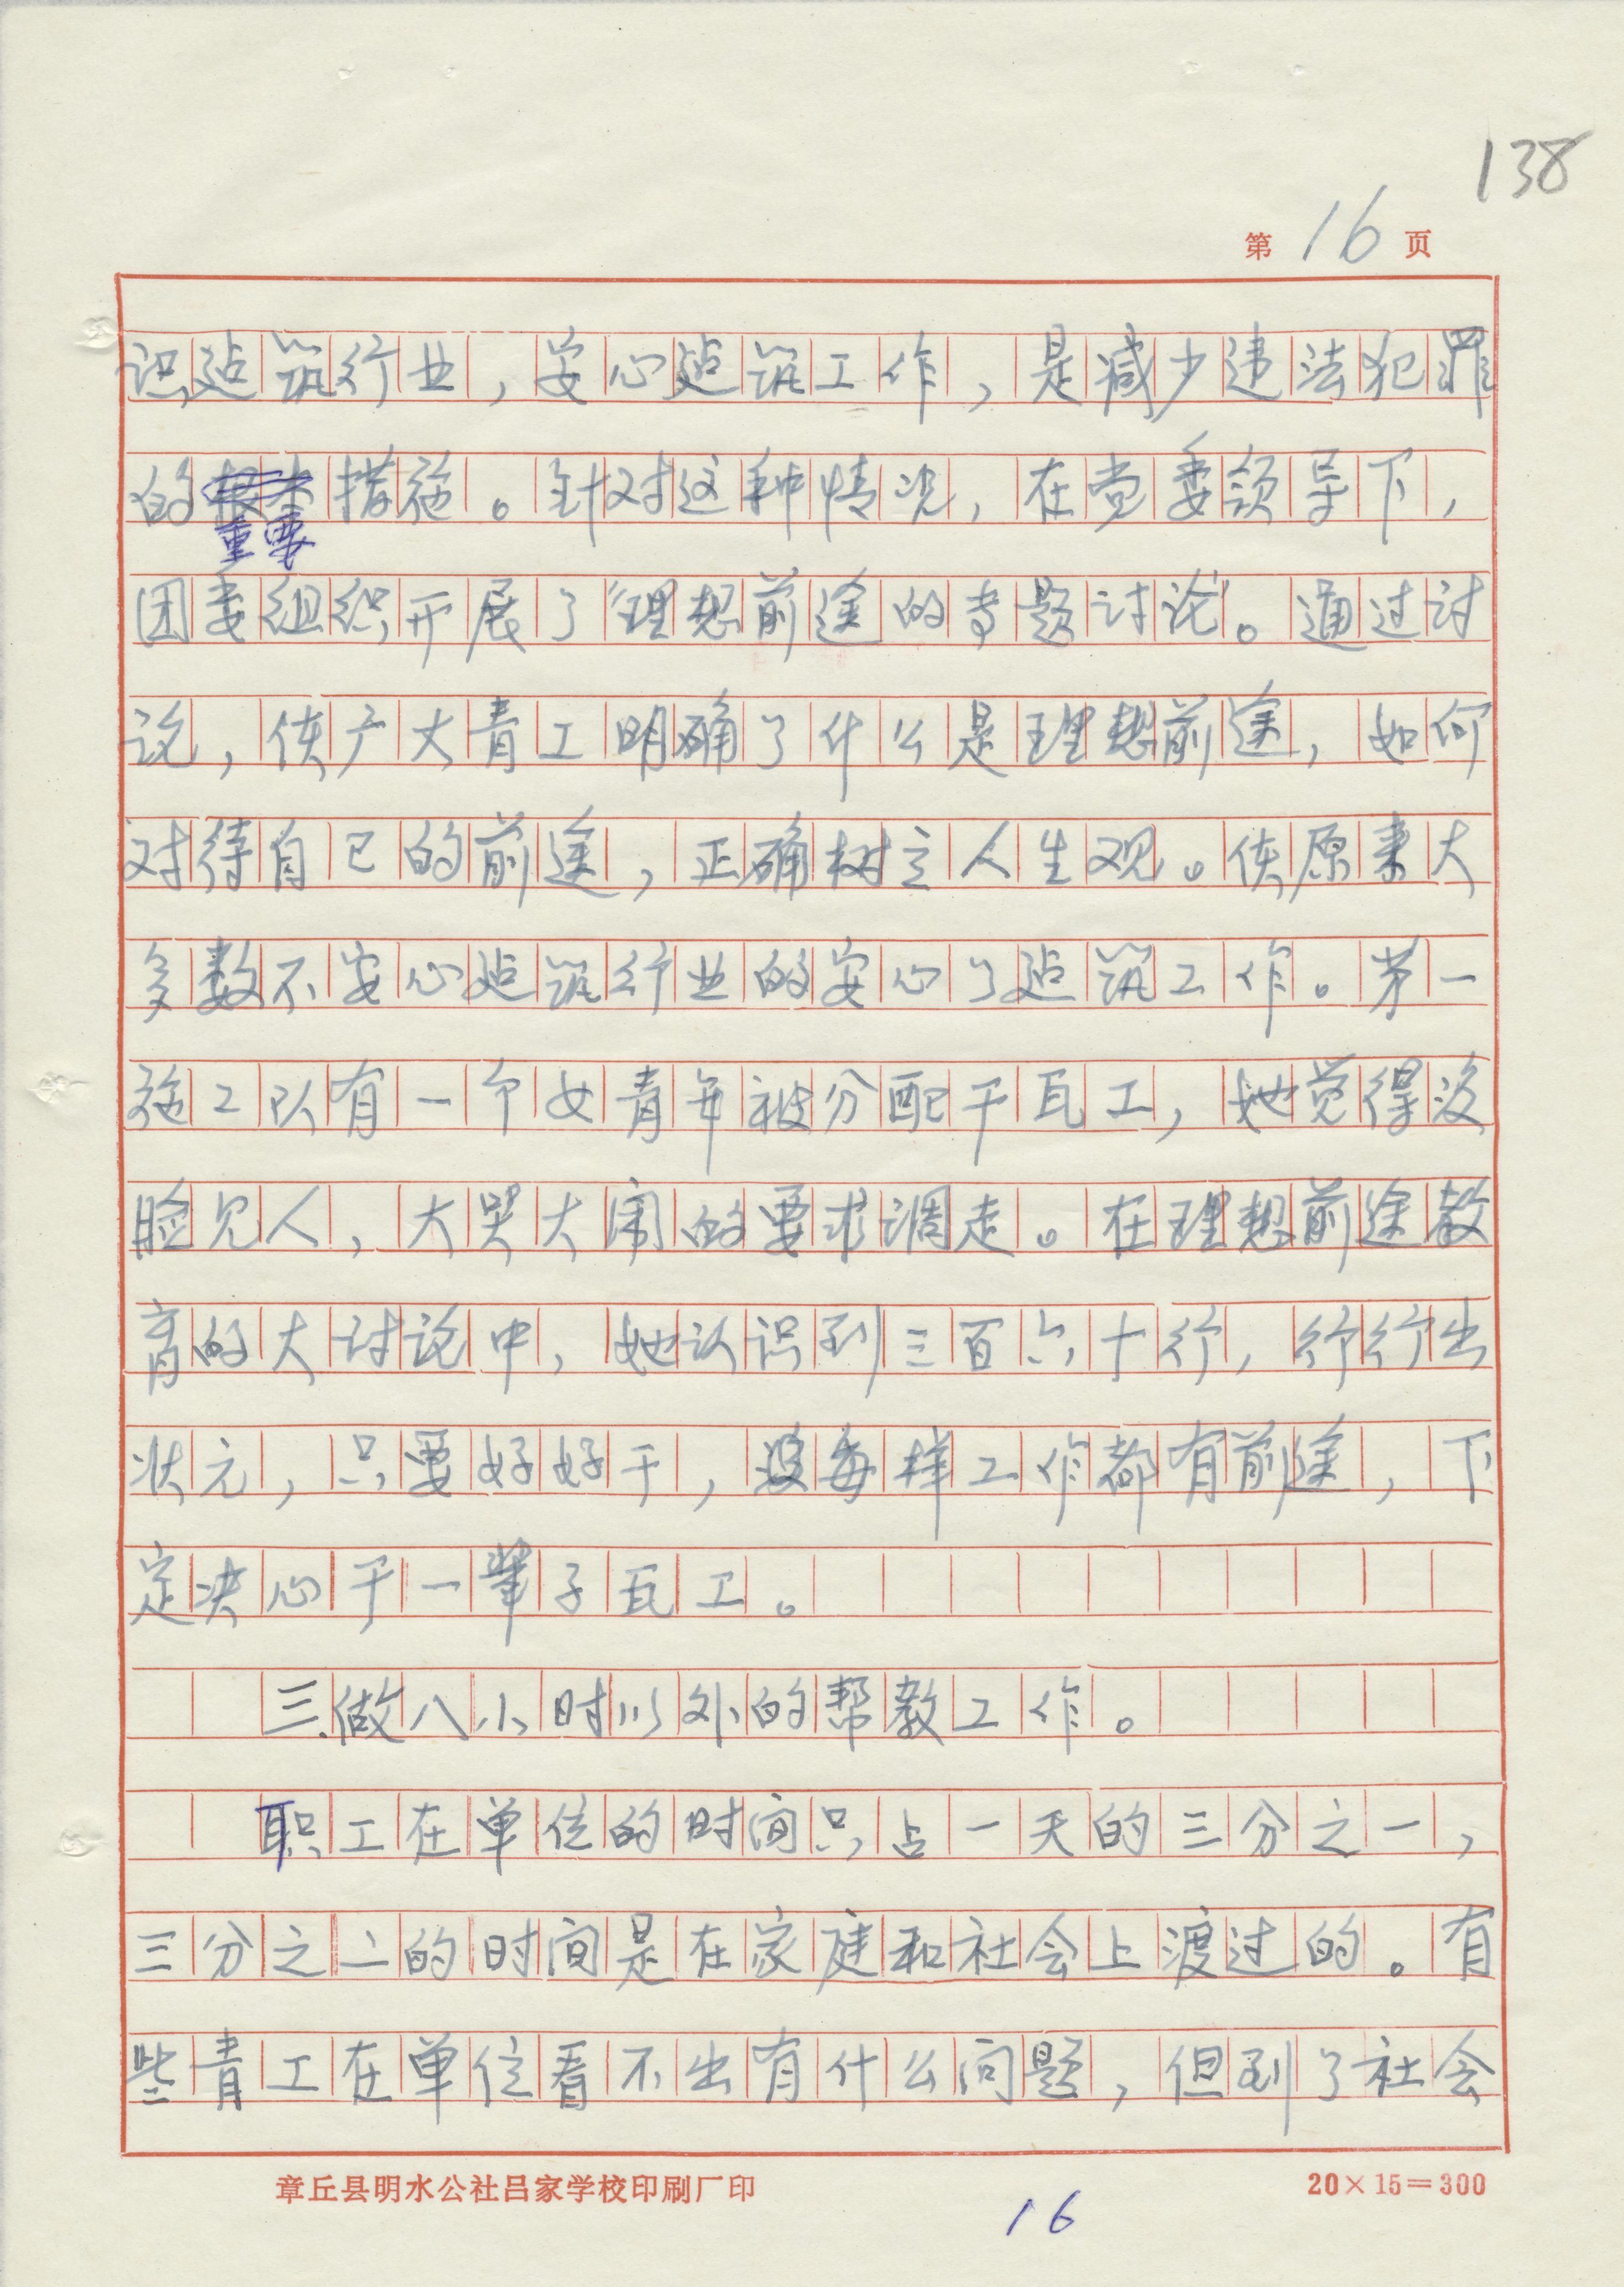 138
第 16 页
识建筑行业，安心建筑工作，是减少违法犯罪
的根本措施。针对这种情况，在党委领导下，
重要
团委组织开展了“理想前途的专题讨论”。通过讨
论，使广大青工明确了什么是理想前途，如何
对待自己的前途，正确树立人生观。使原来大
多数不安心建筑行业的安心了建筑工作。第一
施工队有一个女青年被分配干瓦工，她觉得没
脸见人，大哭大闹的要求调走。在理想前途教
育的大讨论中，她认识到三百六十行，行行出
状元，只要好好干，没每样工作都有前途，下
定决心干一辈子瓦工。
三、做八小时以外的帮教工作。
职工在单位的时间只占一天的三分之一，
三分之二的时间是在家庭和社会上渡过的。有
些青工在单位看不出有什么问题，但到了社会
章丘县明水公社吕家学校印刷厂印 20×15=300
16